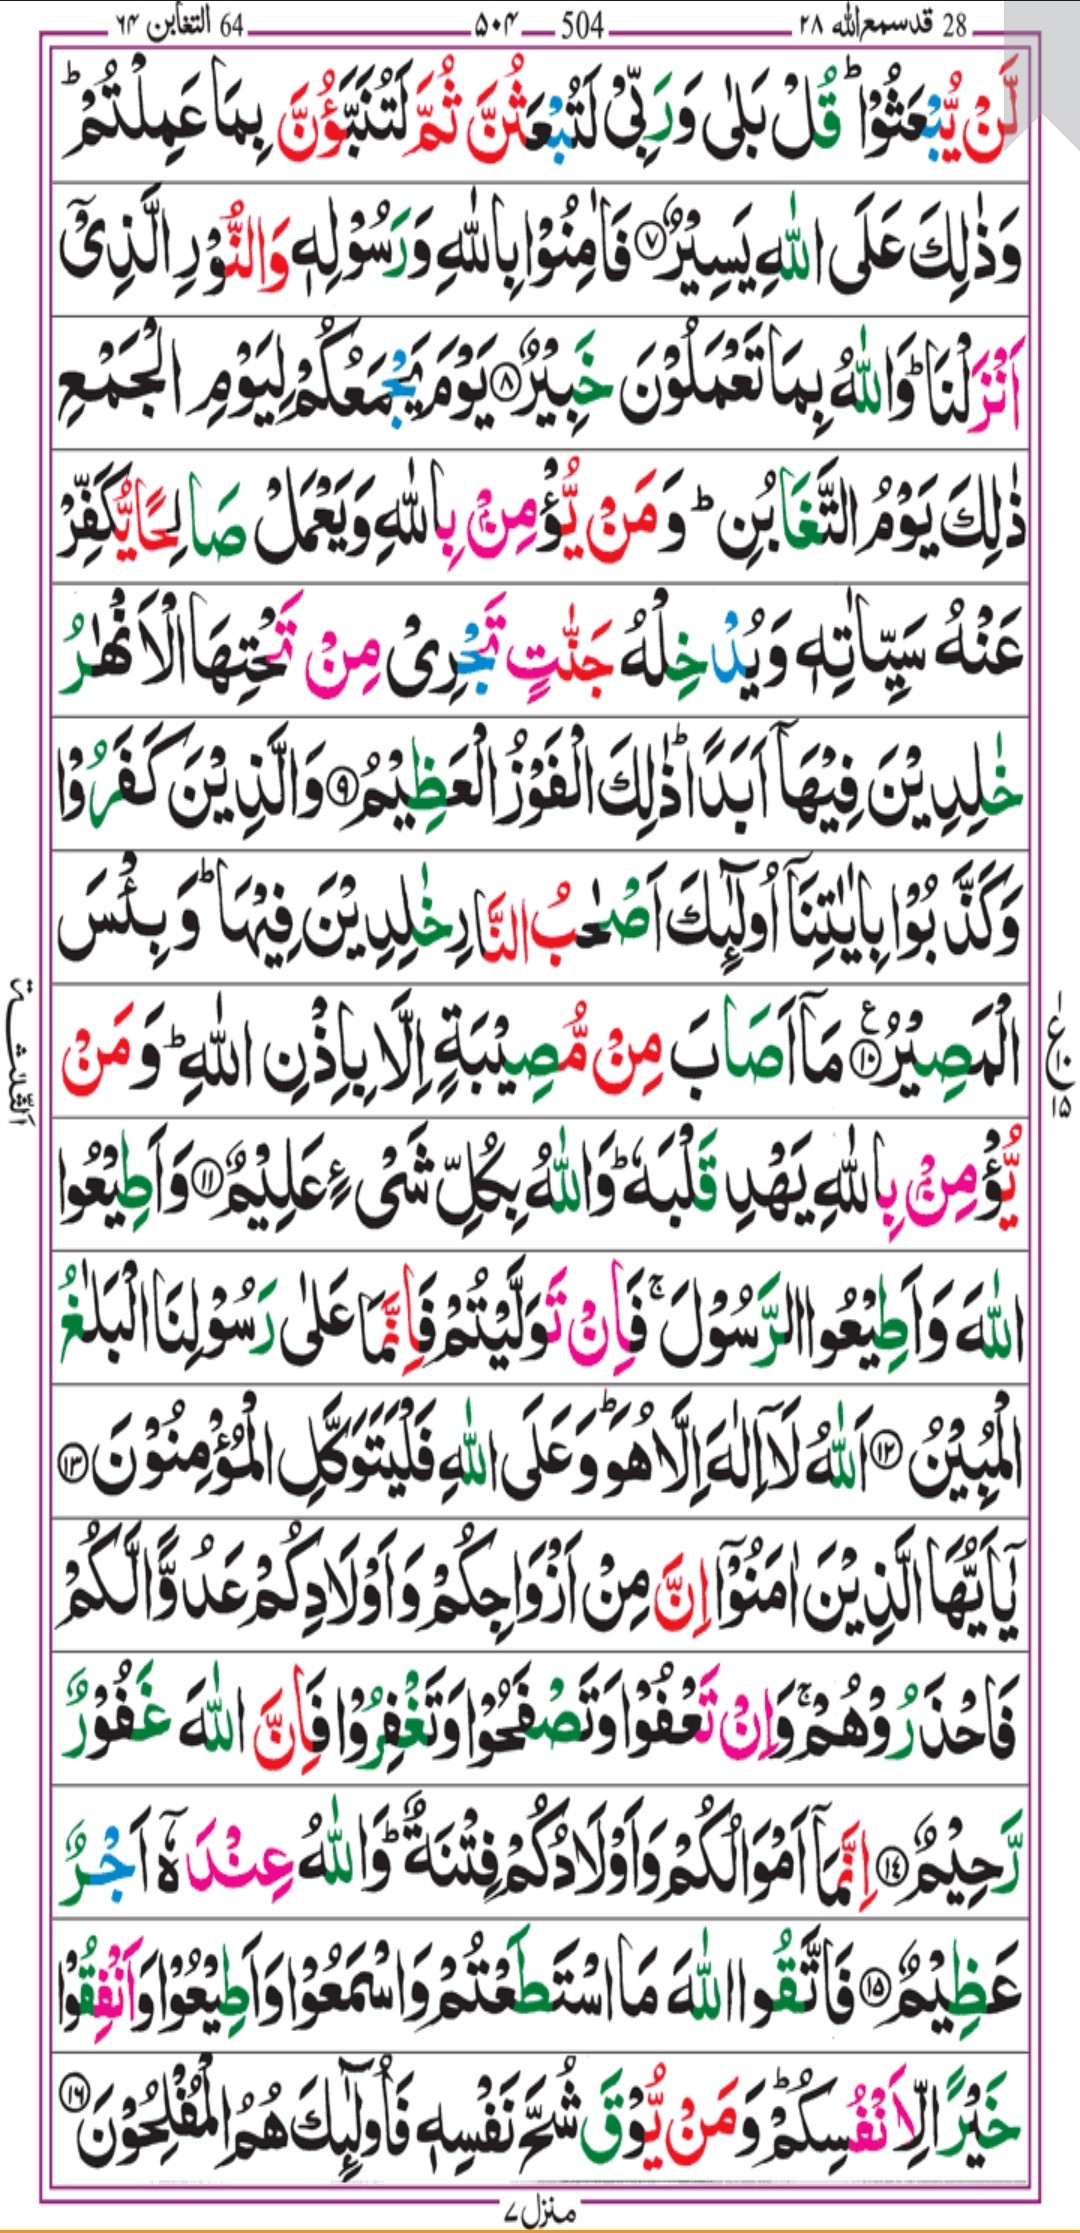 28 قدسمع الله ٢٨ 504 ۵۰۴ 64 التغابن ٦۴
لَّنْ يُّبْعَثُوْا ؕ قُلْ بَلٰى وَرَبِّىْ لَتُبْعَثُنَّ ثُمَّ لَتُنَبَّؤُنَّ بِمَا عَمِلْتُمْ ؕ
وَذٰلِكَ عَلَى اللّٰهِ يَسِيْرٌ ۟﴿۷﴾ فَاٰمِنُوْا بِاللّٰهِ وَرَسُوْلِهٖ وَالنُّوْرِ الَّذِىْۤ
اَنْزَلْنَا ؕ وَاللّٰهُ بِمَا تَعْمَلُوْنَ خَبِيْرٌ ﴿۸﴾ يَوْمَ يَجْمَعُكُمْ لِيَوْمِ الْجَمْعِ
ذٰلِكَ يَوْمُ التَّغَابُنِ ؕ وَمَنْ يُّؤْمِنْۢ بِاللّٰهِ وَيَعْمَلْ صَالِحًا يُّكَفِّرْ
عَنْهُ سَيِّاٰتِهٖ وَيُدْخِلْهُ جَنّٰتٍ تَجْرِىْ مِنْ تَحْتِهَا الْاَنْهٰرُ
خٰلِدِيْنَ فِيْهَاۤ اَبَدًا ؕ ذٰلِكَ الْفَوْزُ الْعَظِيْمُ ﴿۹﴾ وَالَّذِيْنَ كَفَرُوْا
وَكَذَّبُوْا بِاٰيٰتِنَاۤ اُولٰٓئِكَ اَصْحٰبُ النَّارِ خٰلِدِيْنَ فِيْهَا ؕ وَبِئْسَ
الْمَصِيْرُ ﴿۱۰﴾ ع مَاۤ اَصَابَ مِنْ مُّصِيْبَةٍ اِلَّا بِاِذْنِ اللّٰهِ ؕ وَمَنْ
ع ۱۰ ۱۵
الثلٰثة
يُّؤْمِنْۢ بِاللّٰهِ يَهْدِ قَلْبَهٗ ؕ وَاللّٰهُ بِكُلِّ شَىْءٍ عَلِيْمٌ ﴿۱۱﴾ وَاَطِيْعُوا
اللّٰهَ وَاَطِيْعُوا الرَّسُوْلَ ۚ فَاِنْ تَوَلَّيْتُمْ فَاِنَّمَا عَلٰى رَسُوْلِنَا الْبَلٰغُ
الْمُبِيْنُ ﴿۱۲﴾ اَللّٰهُ لَاۤ اِلٰهَ اِلَّا هُوَ ؕ وَعَلَى اللّٰهِ فَلْيَتَوَكَّلِ الْمُؤْمِنُوْنَ ﴿۱۳﴾
يٰۤاَيُّهَا الَّذِيْنَ اٰمَنُوْۤا اِنَّ مِنْ اَزْوَاجِكُمْ وَاَوْلَادِكُمْ عَدُوًّا لَّكُمْ
فَاحْذَرُوْهُمْ ۚ وَاِنْ تَعْفُوْا وَتَصْفَحُوْا وَتَغْفِرُوْا فَاِنَّ اللّٰهَ غَفُوْرٌ
رَّحِيْمٌ ﴿۱۴﴾ اِنَّمَاۤ اَمْوَالُكُمْ وَاَوْلَادُكُمْ فِتْنَةٌ ؕ وَاللّٰهُ عِنْدَهٗۤ اَجْرٌ
عَظِيْمٌ ﴿۱۵﴾ فَاتَّقُوا اللّٰهَ مَا اسْتَطَعْتُمْ وَاسْمَعُوْا وَاَطِيْعُوْا وَاَنْفِقُوْا
خَيْرًا لِّاَنْفُسِكُمْ ؕ وَمَنْ يُّوْقَ شُحَّ نَفْسِهٖ فَاُولٰٓئِكَ هُمُ الْمُفْلِحُوْنَ ﴿۱۶﴾
منزل ۷